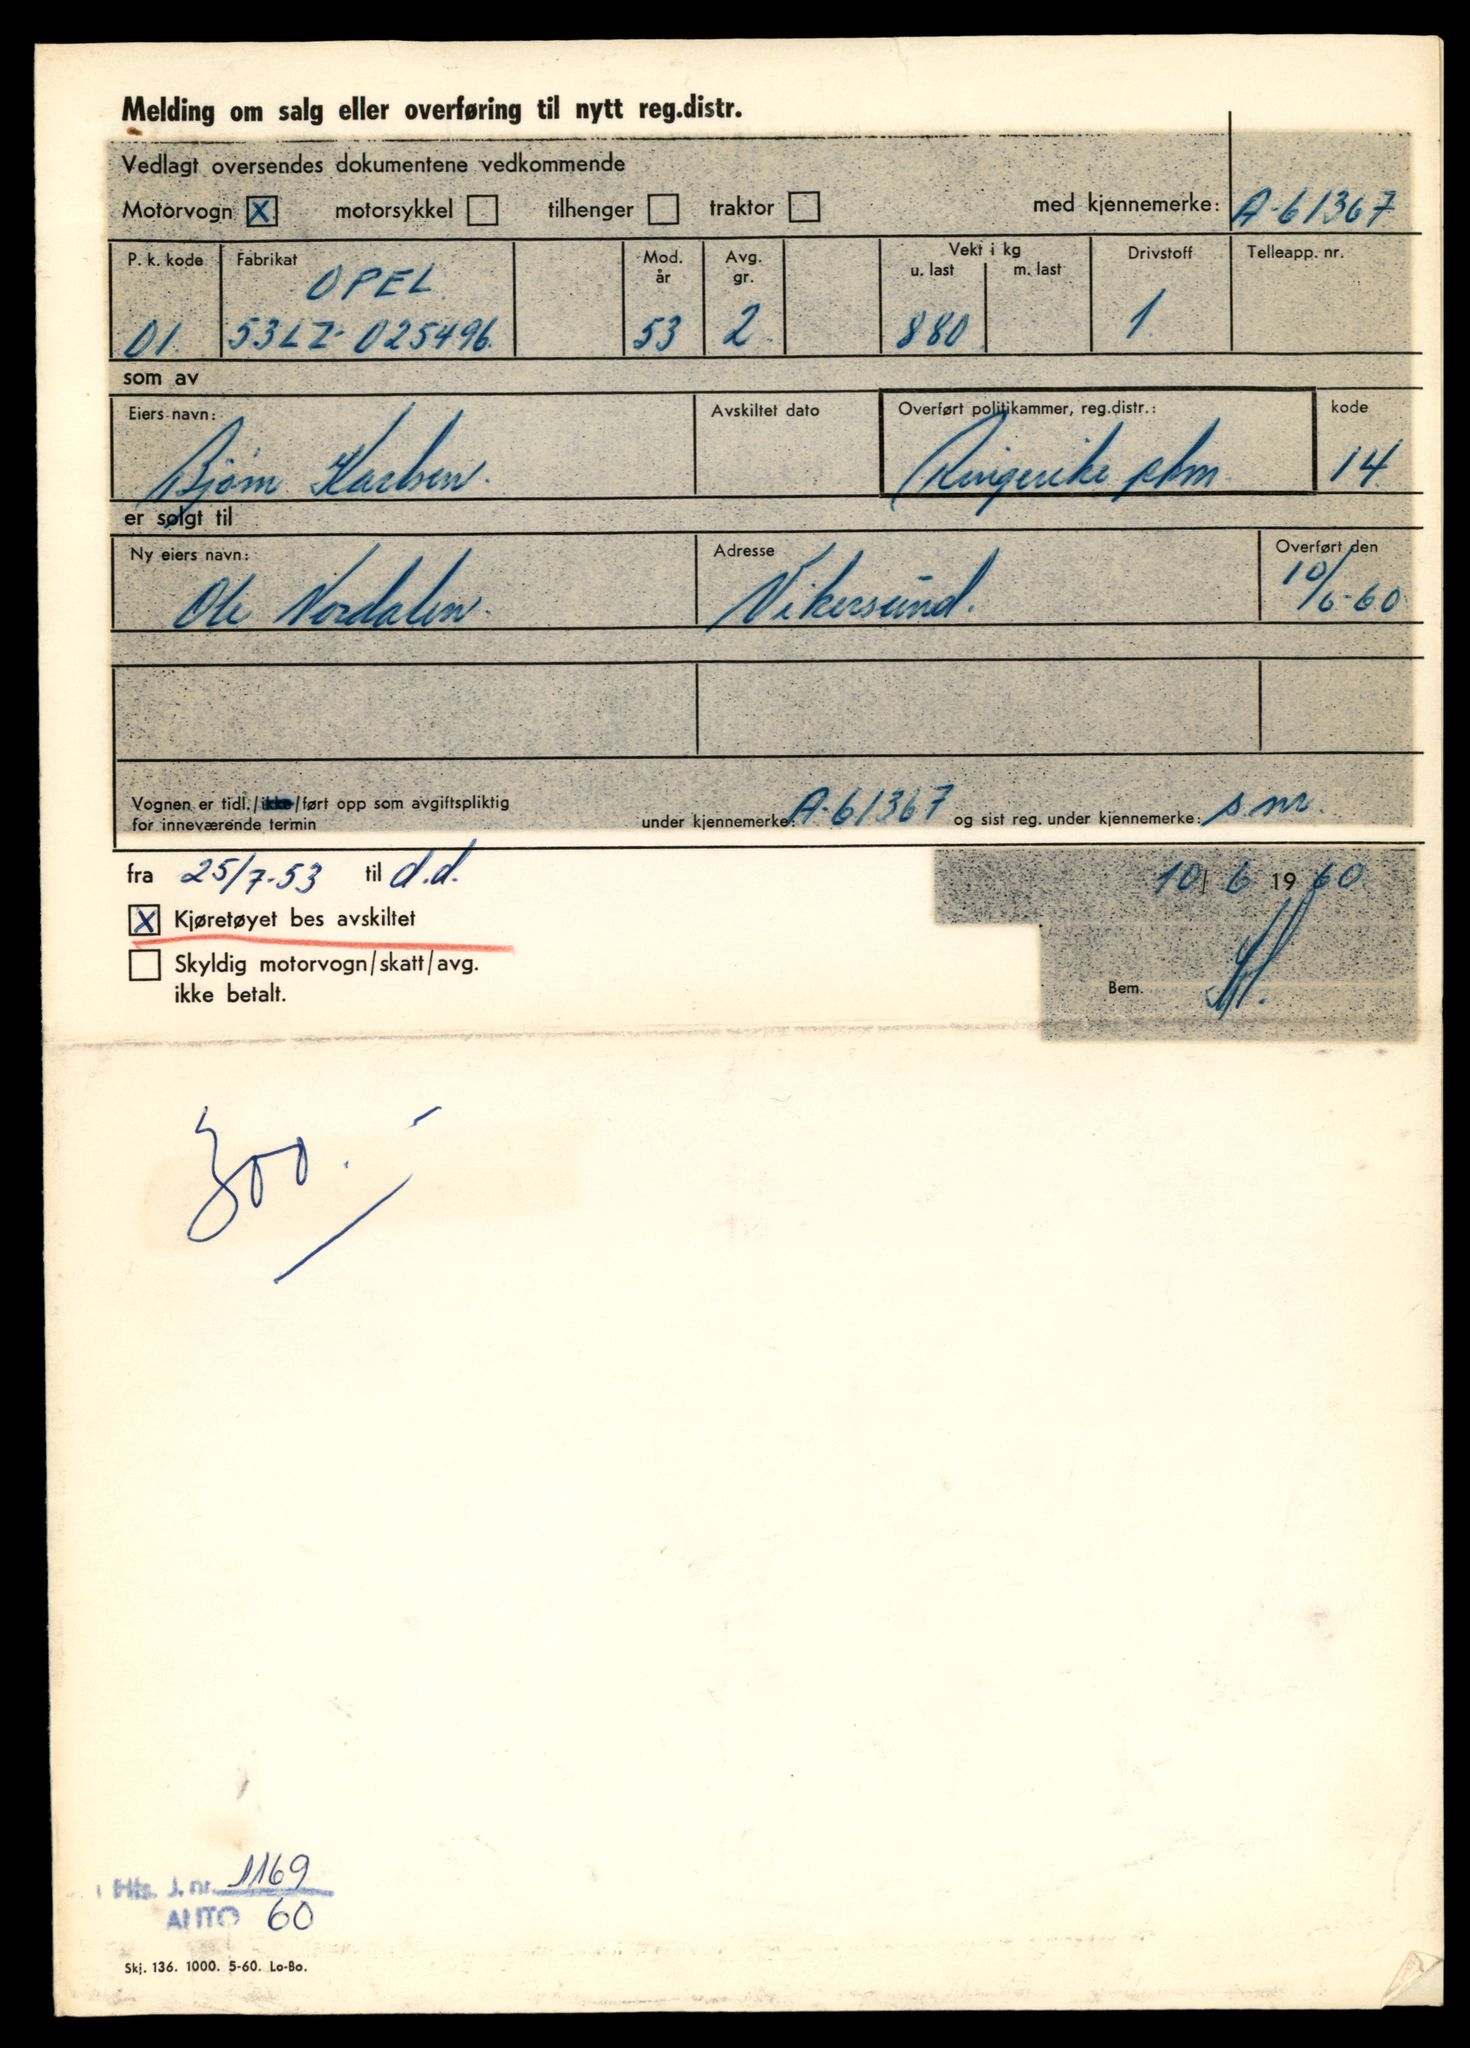 Melding om salg eller overføring til nytt reg.distr.
Vedlagt oversendes dokumentene vedkommende
Motorvogn X motorsykkel tilhenger traktor med kjennemerke: A-61367
P. k. kode Fabrikat Mod. år Avg. gr. Vekt i kg u. last m. last Drivstoff Telleapp. nr.
OPEL
01. 53LZ-025496. 53 2. 880 1
som av
Eiers navn: Avskiltet dato Overført politikammer, reg.distr.: kode
Bjørn Karlsen. Ringerike pkm 14
er solgt til
Ny eiers navn: Adresse Overført den
Ole Nordalen. Vikersund. 10/6-60
Vognen er tidl./ikke/ført opp som avgiftspliktig
for inneværende termin under kjennemerke: A-61367 og sist reg. under kjennemerke: s.nr.
fra 25/7-53 til d.d. 10/6 1960
X Kjøretøyet bes avskiltet
Skyldig motorvogn/skatt/avg.
ikke betalt.
Bem.
300.-
J. nr. 1169
AUTO 60
Skj. 136. 1000. 5-60. Lo-Bo.